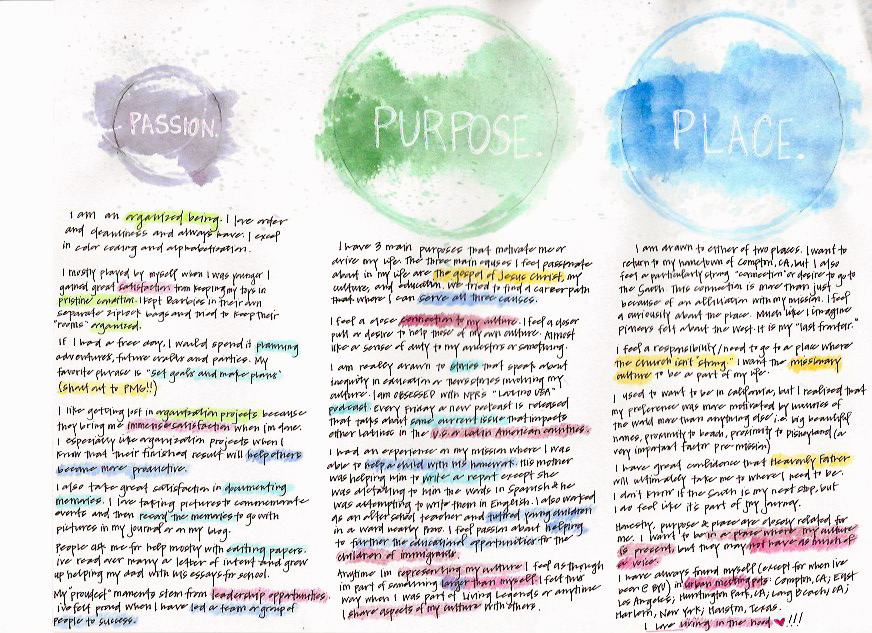 PASSION.
I am an organized being. I love order
and cleanliness and always have. I excel
in color coding and alphabetization.
I mostly played by myself when I was younger I
gained great satisfaction from keeping my toys in
pristine condition. I kept Barbies in their own
separate ziplock bags and tried to keep their
"rooms" organized.
If I had a free day, I would spend it planning
adventures, future crafts and parties. My
favorite phrase is "set goals and make plans"
(shout out to PMG!!)
I like getting lost in organization projects because
they bring me immense satisfaction when I'm done.
I especially like organization projects when I
know that their finished result will help others
become more productive.
I also take great satisfaction in documenting
memories. I love taking pictures to commemorate
events and then record the memories to go with
pictures in my journal or on my blog.
People ask me for help mostly with editing papers.
I've read over many a letter of intent and grew
up helping my dad with his essays for school.
My "proudest" moments stem from leadership opportunities.
I've felt proud when I have led a team or group of
people to success.
PURPOSE.
I have 3 main purposes that motivate me or
drive my life. The three main causes I feel passionate
about in my life are the gospel of Jesus Christ, my
culture, and education. I've tried to find a career path
that where I can serve all three causes.
I feel a close connection to my culture. I feel a closer
pull or desire to help those of my own culture. Almost
like a sense of duty to my ancestors or something.
I am really drawn to stories that speak about
inequity in education or themes involving my
culture. I am OBSESSED with NPR's "Latino USA"
podcast. Every Friday a new podcast is released
that talks about some current issue that impacts
other Latinos in the U.S. or Latin American countries.
I had an experience on my mission where I was
able to help a child with his homework. His mother
was helping him to write a report except she
was dictating to him the words in Spanish & he
was attempting to write them in English. I also worked
as an after school teacher and tutored young children
in a ward near Provo. I feel passion about helping
to further the educational opportunities for the
children of immigrants.
Anytime I'm representing my culture I feel as though
I'm part of something larger than myself. I felt this
way when I was part of Living Legends or anytime
I share aspects of my culture with others.
PLACE.
I am drawn to either of two places. I want to
return to my hometown of Compton, CA, but I also
feel a particularly strong "connection" or desire to go to
the South. This connection is more than just
because of an alluviation with my mission. I feel
a curiously about the place. Much like I imagine
pioneers felt about the West. It is my "last frontier."
I feel a responsibility/need to go to a place where
the church isn't "strong." I want the missionary
culture to be a part of my life.
I used to want to be in California, but I realized that
my preference was more motivated by luxuries of
the world more than anything else i.e. big beautiful
homes, proximity to beach, proximity to Disneyland (a
very important factor pre-mission)
I have great confidence that Heavenly Father
will ultimately take me to where I need to be.
I don't know if the South is my next stop, but
I do feel like it's part of my journey.
Honestly, purpose & place are closely related for
me. I want to be in a place where my culture
is present, but they may not have as much of
a voice.
I have always found myself (except for when I've
been @ BYU) in urban melting pots: Compton, CA; East
Los Angeles; Huntington Park, CA; Long Beach, CA;
Harlem, New York; Houston, Texas.
I love living in the hood ♥!!!